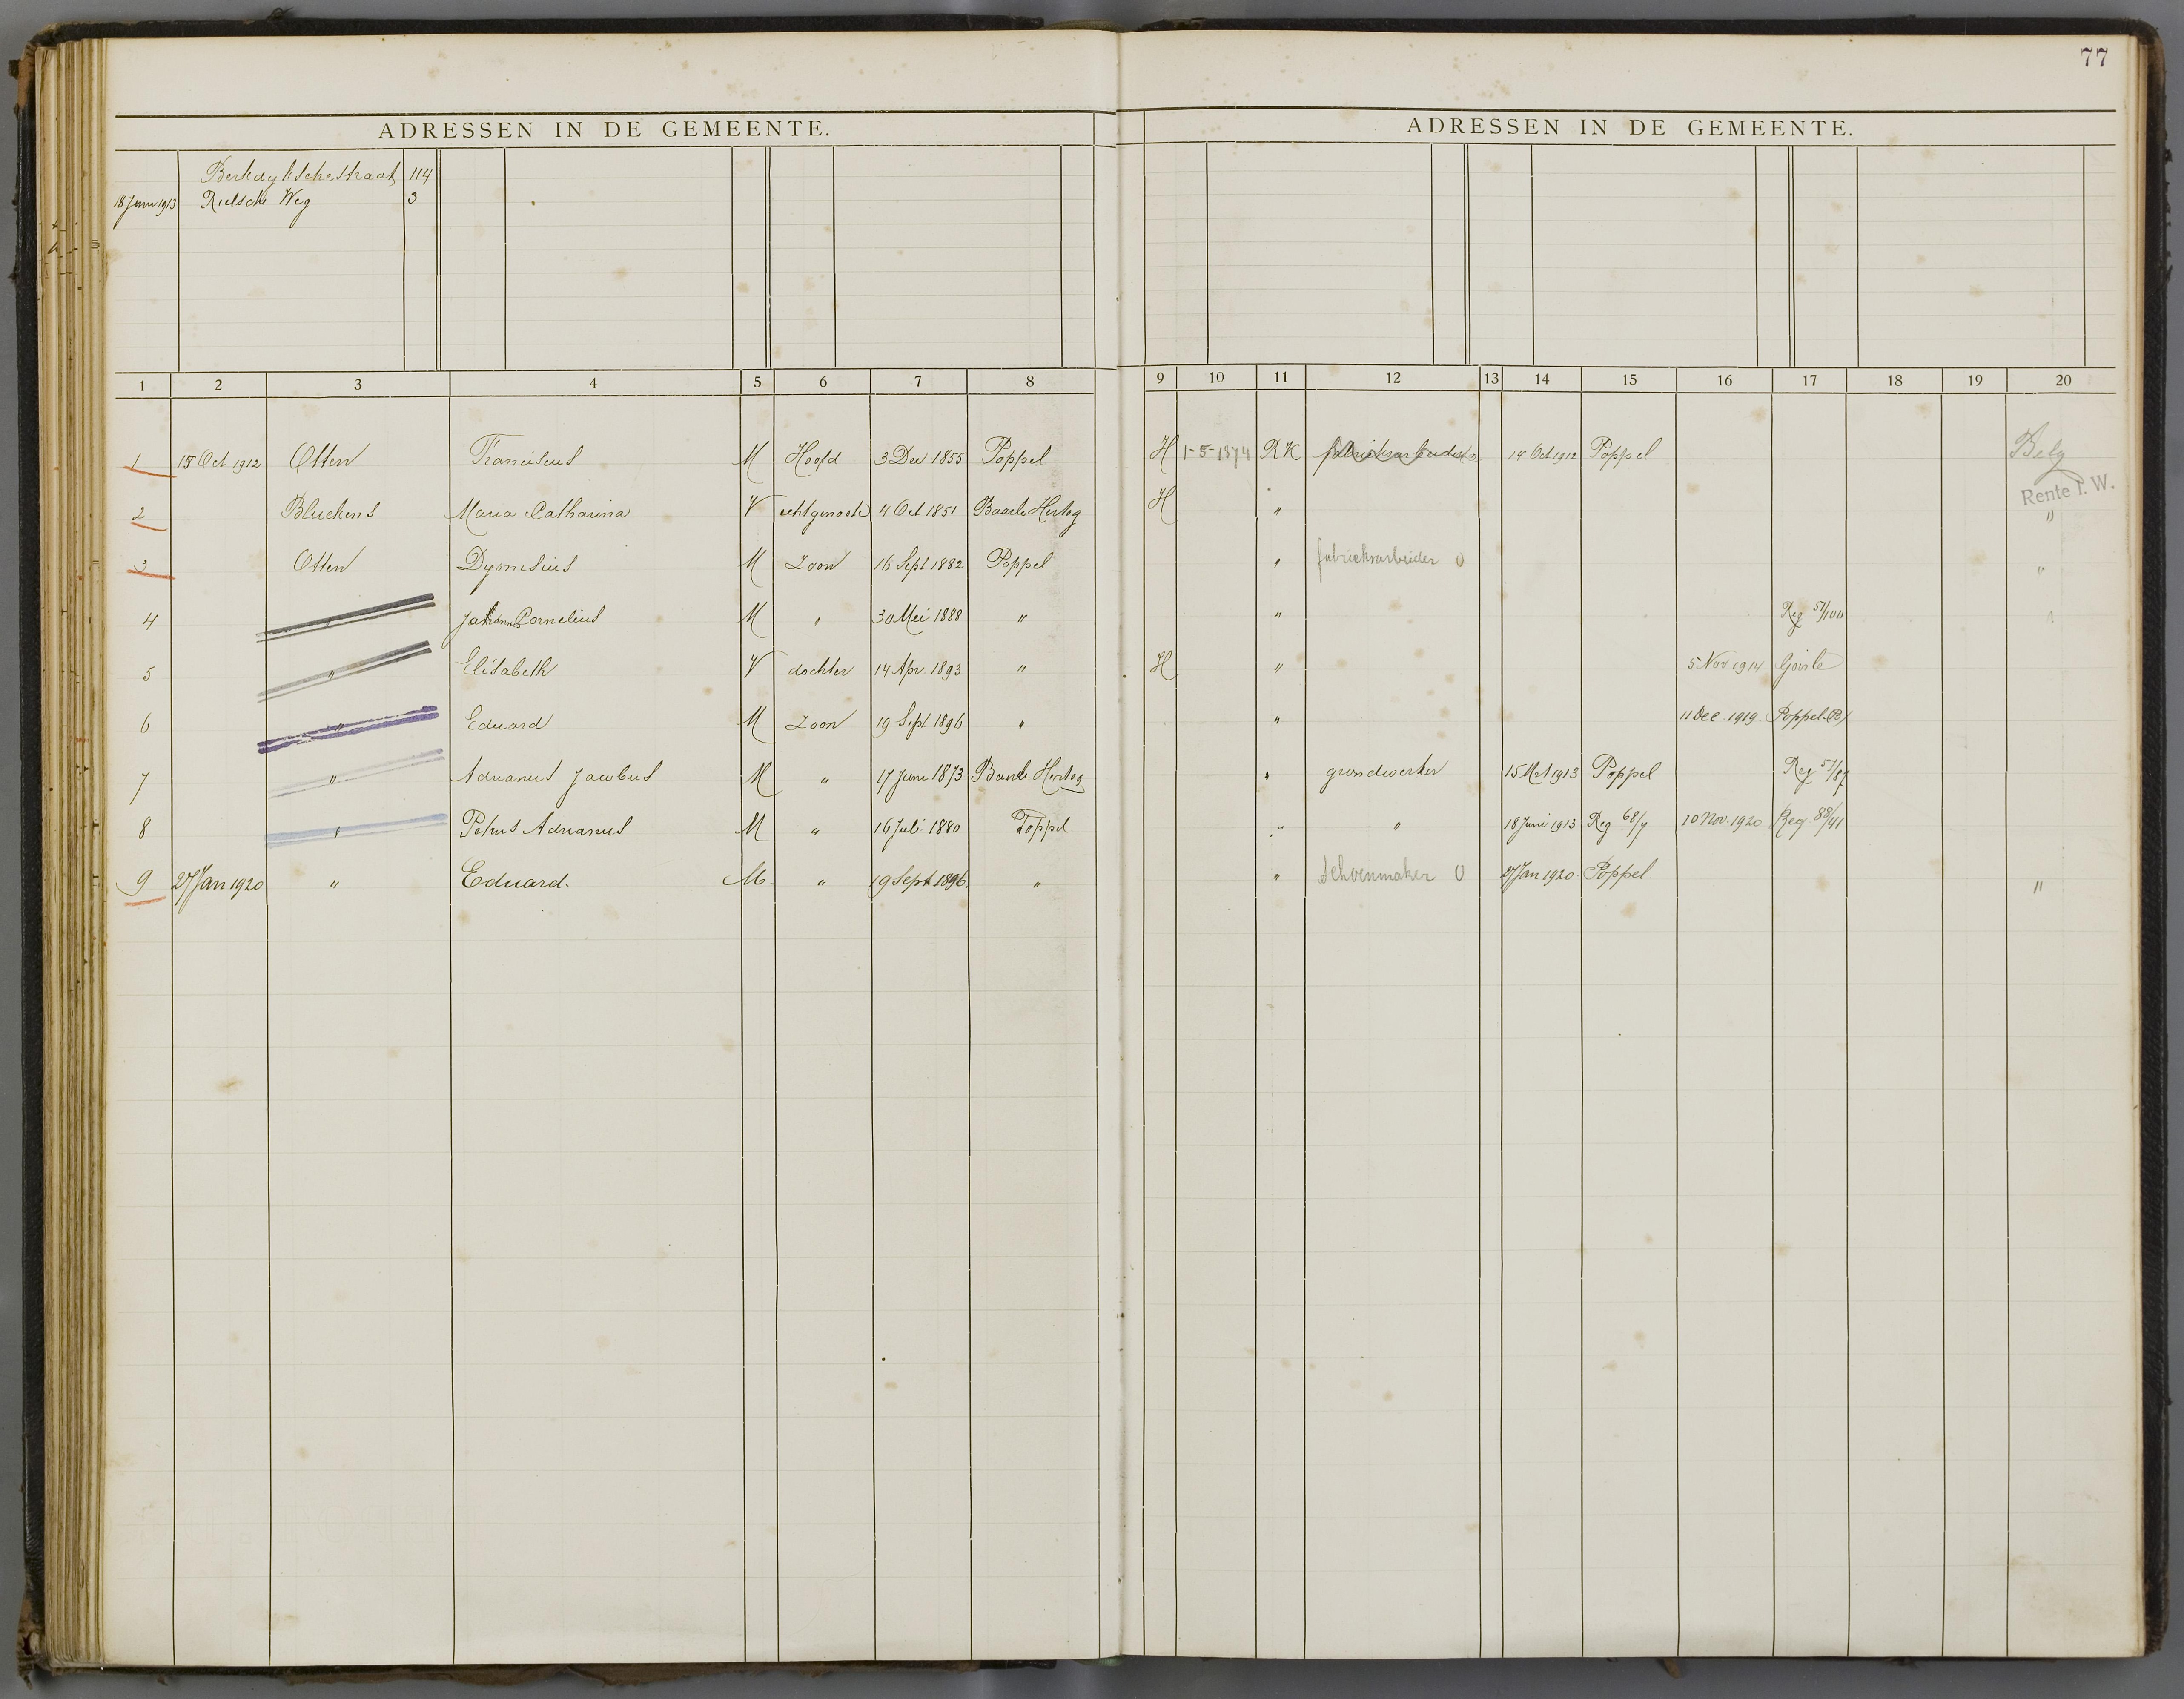 77
ADRESSEN IN DE GEMEENTE.
ADRESSEN IN DE GEMEENTE.
Berkdyksche straat 114
18 Juni 1913 Rielsche Weg 3
1 2 3 4 5 6 7 8 9 10 11 12 13 14 15 16 17 18 19 20
1 15 Oct 1912 Otten Franciscus M Hoofd 3 Dec 1855 Poppel H 1-5-1874 RK fabrieksarbeider 14 Oct 1912 Poppel Belg
Rente I. W.
2 Bluekens Maria Catharina V echtgenoote 4 Oct 1851 Baarle Hertog H " "
3 Otten Dyonisius M Zoon 16 Sept 1882 Poppel " fabrieksarbeider O "
4 " Johannes Cornelius M " 30 Mei 1888 " " Reg 57/100 "
5 " Elisabeth V dochter 14 Apr. 1893 " H " 5 Nov 1914 Goirle
6 " Eduard M Zoon 19 Sept 1896 " " 11 Dec. 1919. Poppel (B)
7 " Adrianus Jacobus M " 17 Juni 1873 Baarle Hertog " grondwerker 15 Mrt 1913 Poppel Reg 57/87
8 " Petrus Adrianus M " 16 Juli 1880 Poppel " " 18 Juni 1913 Reg 68/9 10 Nov. 1920 Reg 88/41
9 27 Jan 1920 " Eduard. M. " 19 Sept 1896. " " Schoenmaker O 27 Jan 1920 Poppel "